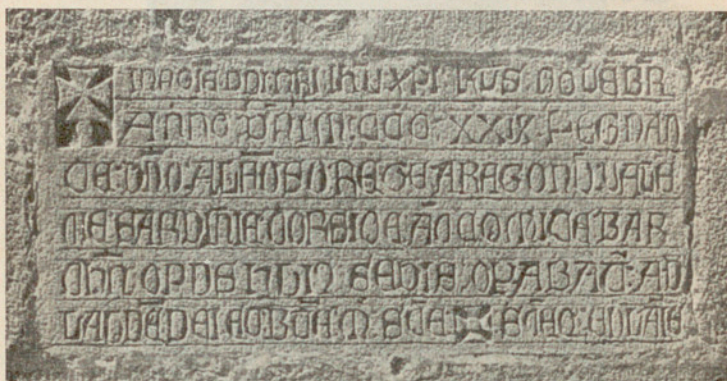 DNI NRI IHU XPI KLS NOVEBR
ANNO DNI M CCC XXIX REGNAN
TE DNO ALFONSO REGE ARAGONU VALE
CIE SARDINIE CORSICE AC COMITE BAR
CHN OP SEDIS OPABAT AD
LAUDE DEI ET BTE M SCE ✠ SCEQ EULALIE